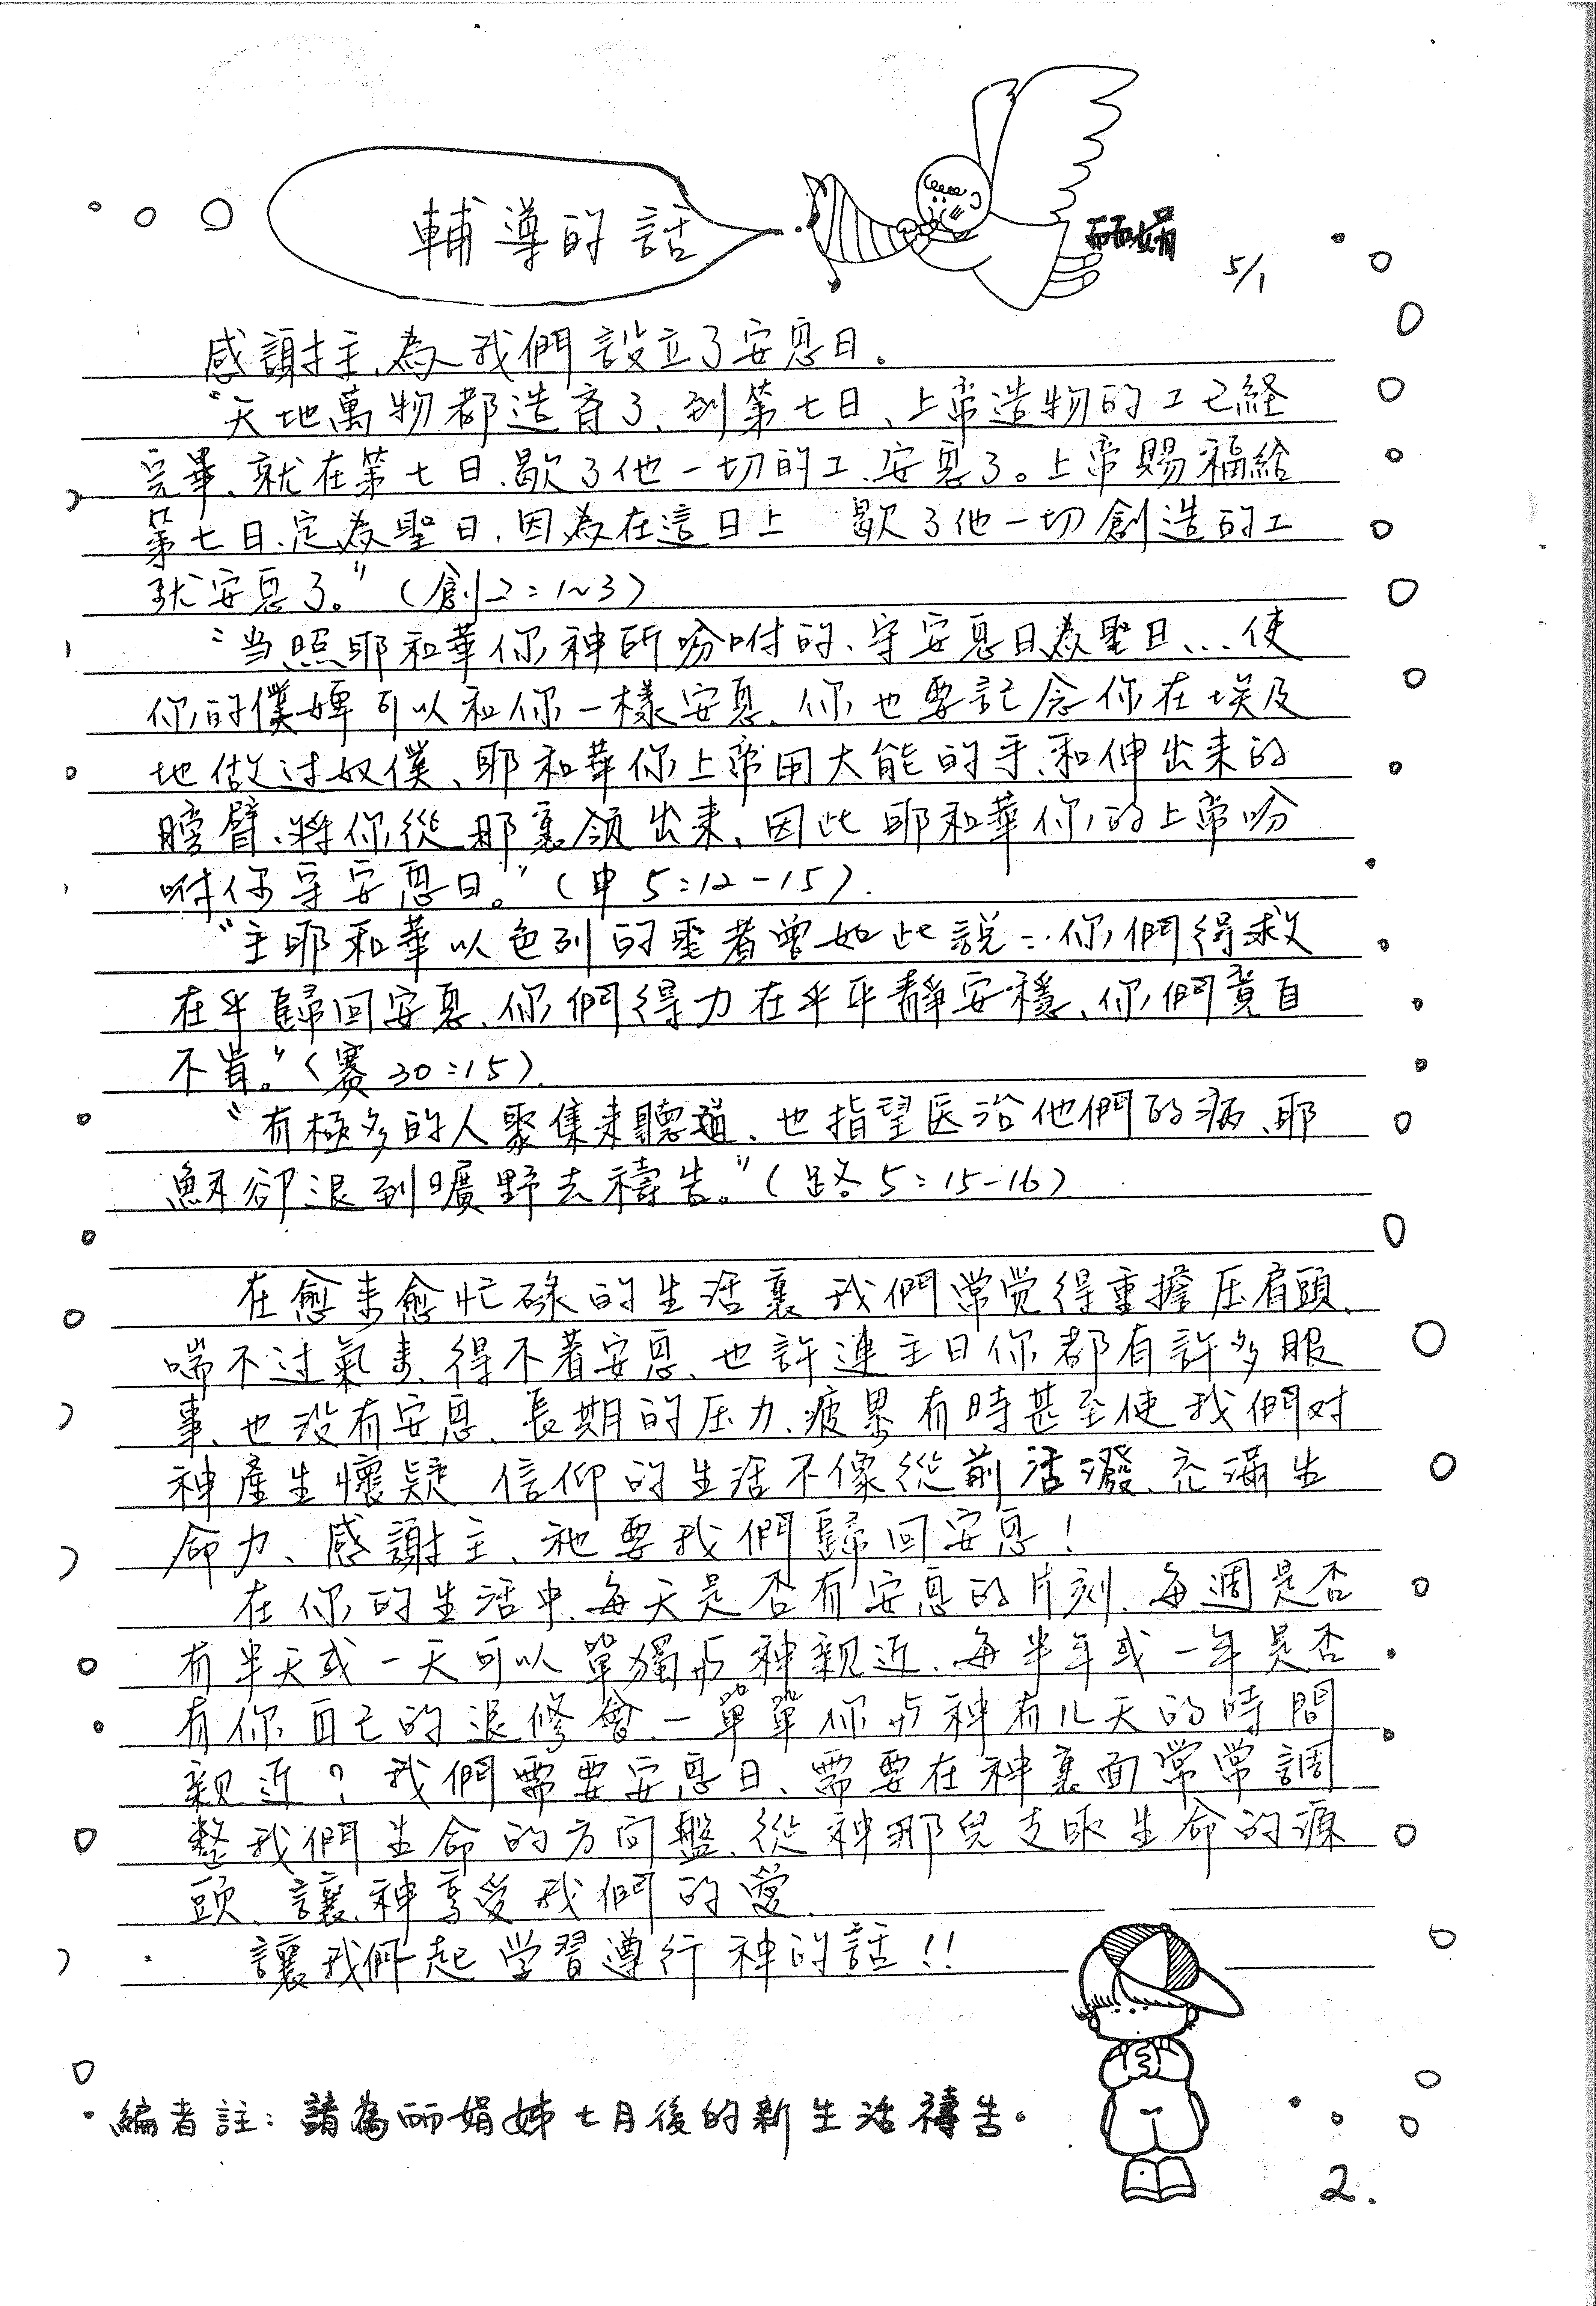 輔導的話
5/1
感謝主、為我們設立了安息日。
"天地萬物都造齊了、到第七日、上帝造物的工已経
完畢、就在第七日、歇了他一切的工、安息了。上帝賜福給
第七日、定為聖日、因為在這日上 歇了他一切創造的工
就安息了。"(創2:1~3)
"当照耶和華你神所吩咐的、守安息日為聖日、...使
你的僕婢可以和你一樣安息、你也要記念你在埃及
地做过奴僕、耶和華你上帝用大能的手、和伸出来的
膀臂、將你從那裏領出来、因此耶和華你的上帝吩
咐你守安息日。"(申5:12-15).
"主耶和華以色列的聖者曾如此說:你們得救
在乎歸回安息、你們得力在乎平靜安穩、你們竟自
不肯。"(賽30:15).
"有極多的人聚集来聽道、也指望医治他們的病、耶
穌卻退到曠野去禱告。"(路5:15-16)
在愈来愈忙碌的生活裏 我們常覚得重擔压肩頭、
喘不过氣来、得不着安息、也許連主日你都有許多服
事、也沒有安息、長期的压力、疲累有時甚至使我們对
神產生懷疑、信仰的生活不像從前活潑、充滿生
命力、感謝主、祂要我們歸回安息!
在你的生活中、每天是否有安息的片刻、每週是否
有半天或一天可以單獨与神親近、每半年或一年是否
有你自己的退修會、一單單你与神有几天的時間
親近?我們需要安息日、需要在神裏面常常調
整我們生命的方向盤、從神那兒支取生命的源
頭、讓神享受我們的愛.
讓我們一起学習遵行神的話!!
編者註:請為師娟姊七月後的新生活禱告。
2.